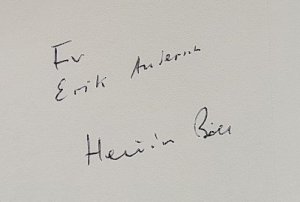 Für
Erik Andersch
Heinrich Böll